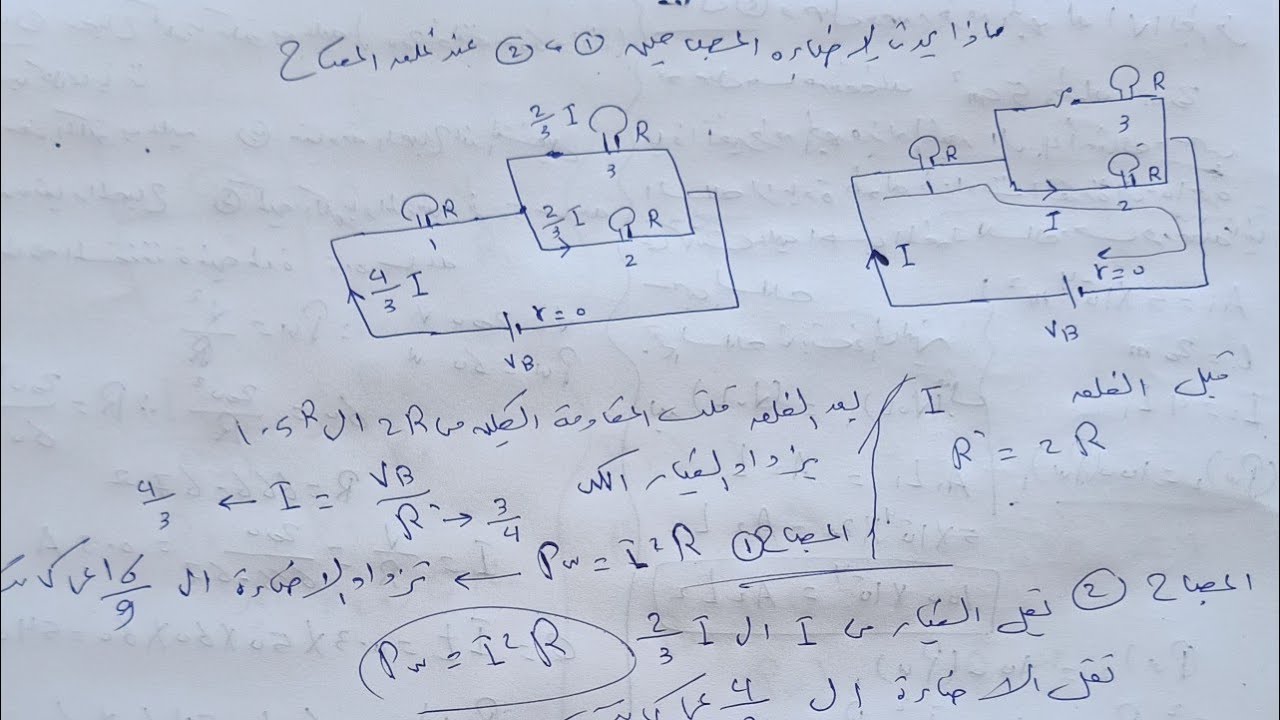 ماذا يحدث لإضاءة المصباحين ① ، ② عند غلق المفتاح
R
3
R
1
R
2
I
I
r = 0
VB
2/3 I
R
3
R
1
2/3 I
R
2
4/3 I
r = 0
VB
قبل الغلق
I
R` = 2R
بعد الغلق قلت المقاومة الكلية من 2R الى 1.5R
يزداد التيار الكلى
4/3 ← I = VB / R` → 3/4
المصباح ① Pw = I²R ← تزداد الإضاءة الى 16/9
المصباح ② تقل التيار من I الى 2/3 I
Pw = I²R
تقل الاضاءة الى 4